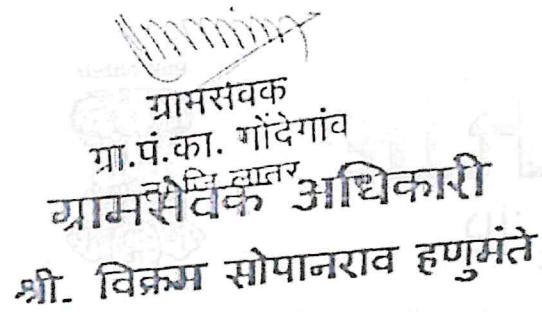 ग्रामसेवक
ग्रा.पं.का. गोंदेगांव
जि लातूर
ग्रामसेवक अधिकारी
श्री. विक्रम सोपानराव हणुमंते